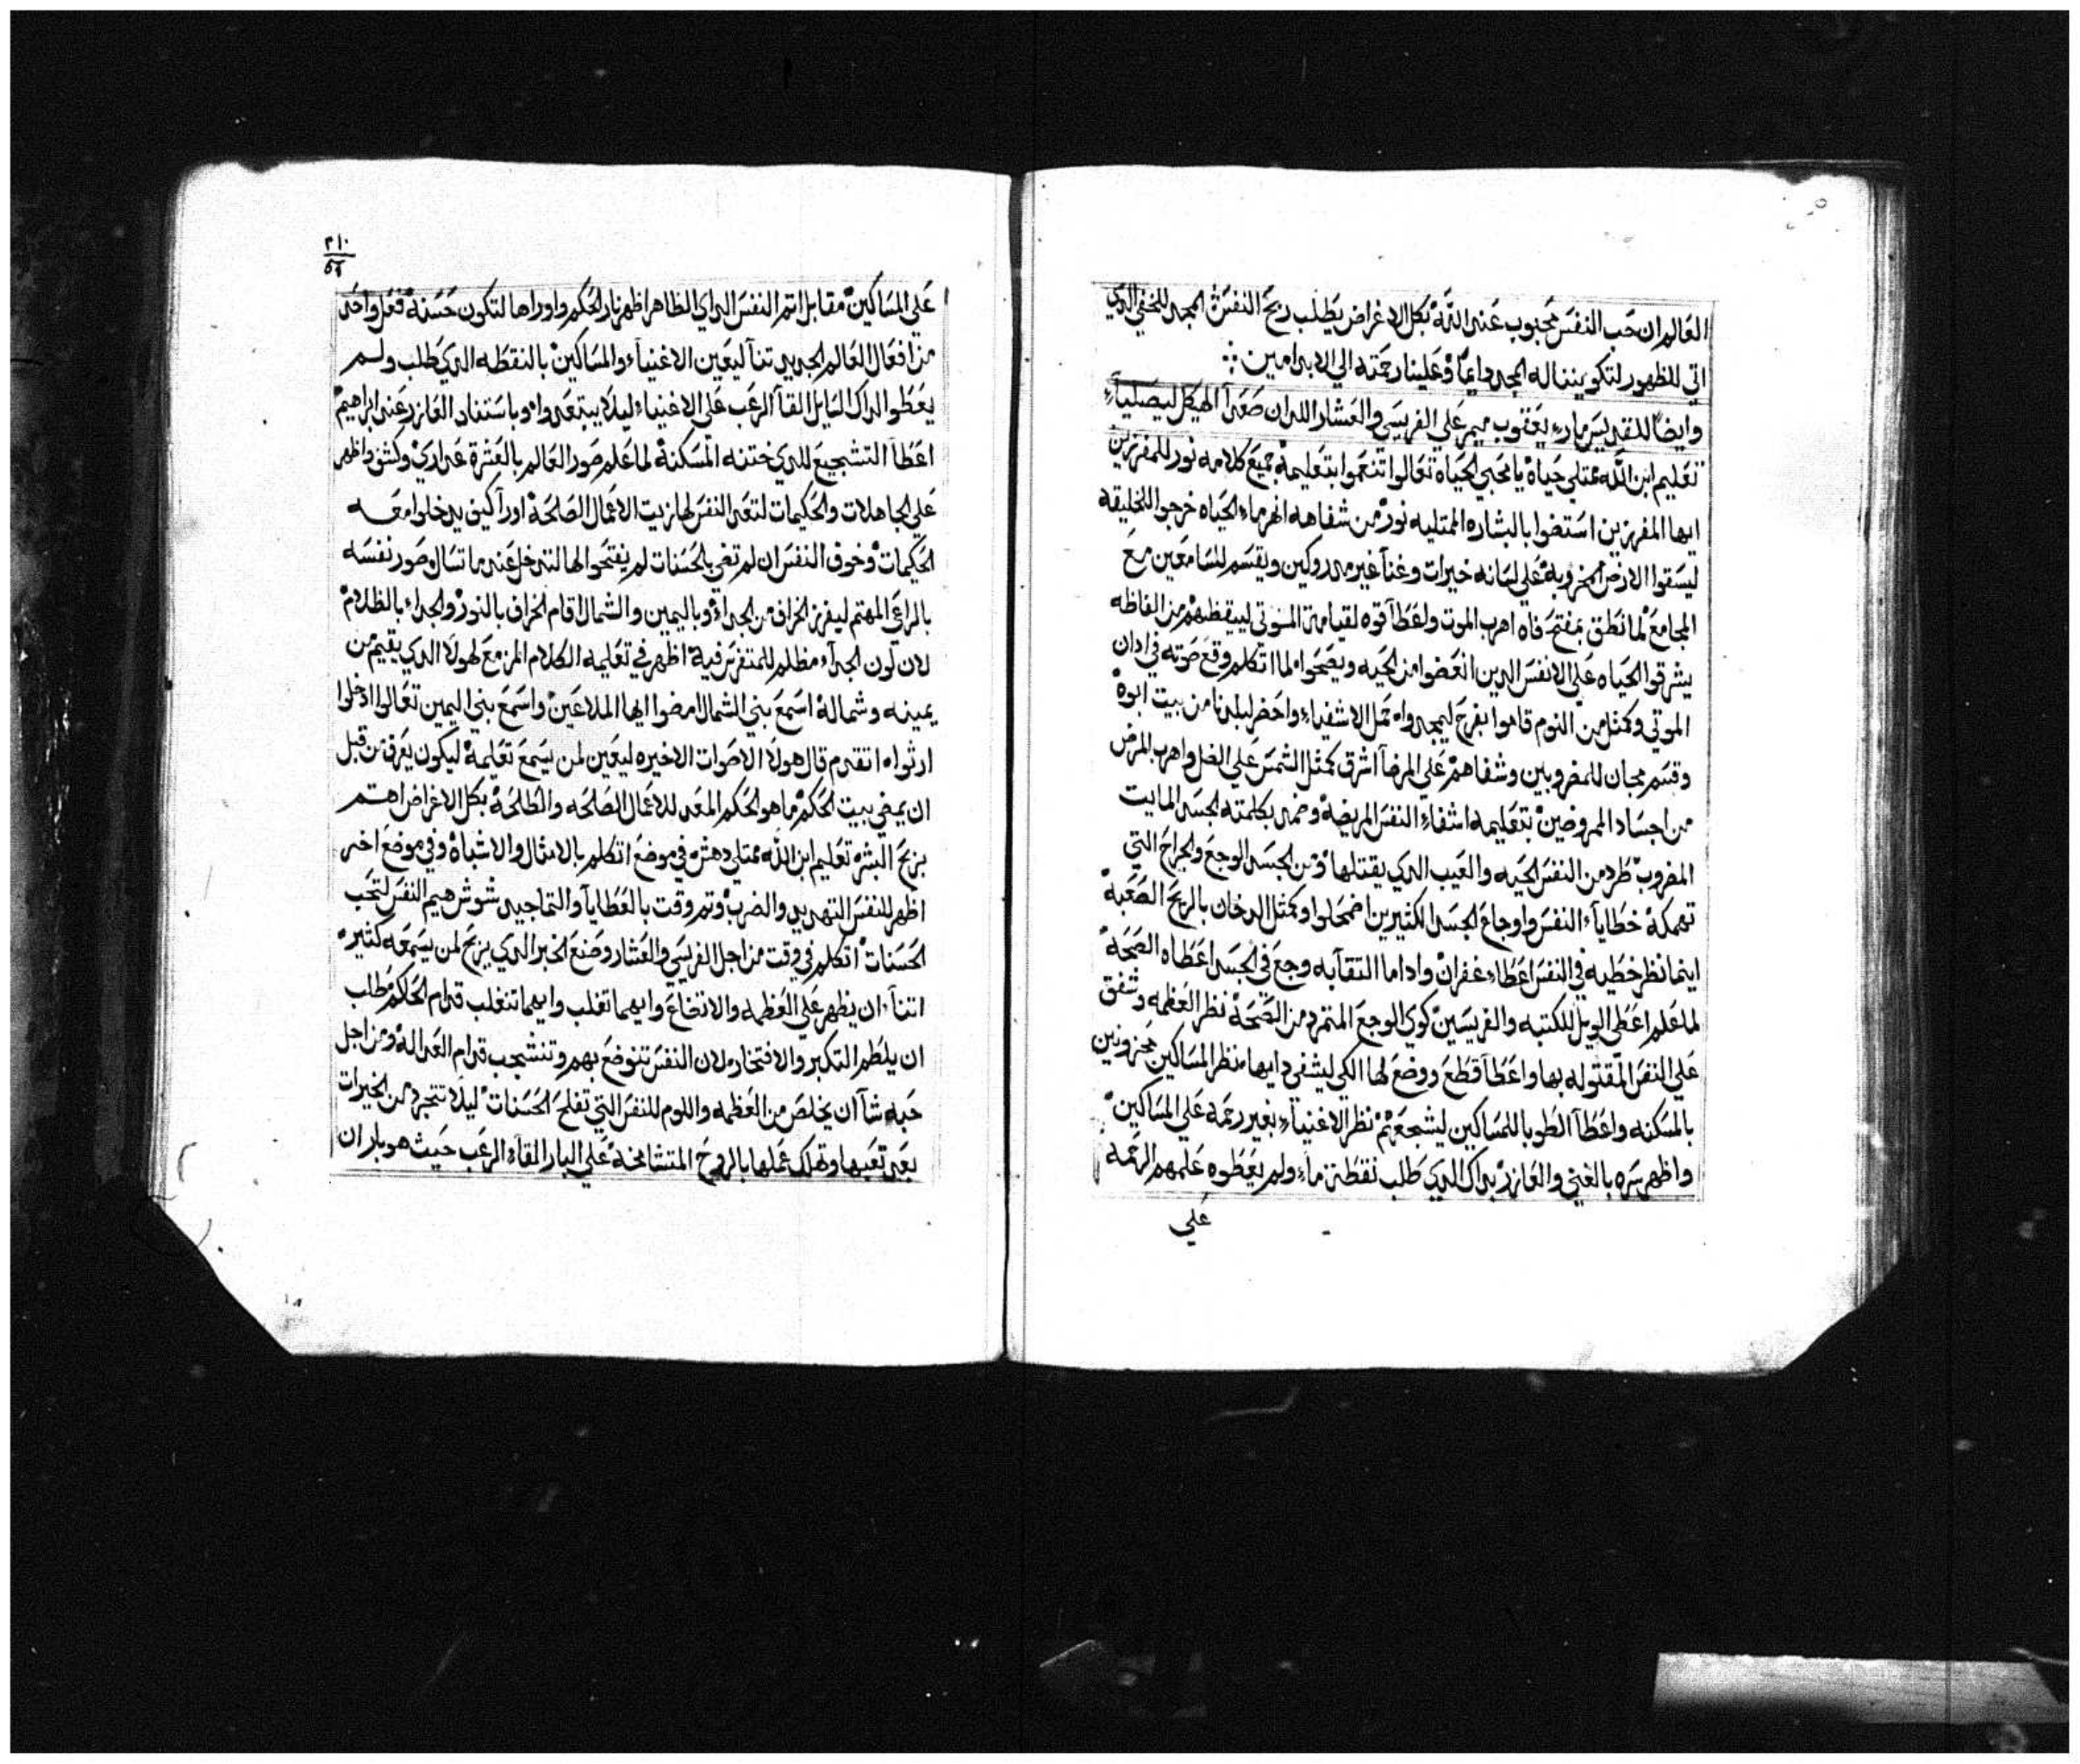 العالم ان حب النفس محبوب عند الله بكل الاغراض يطلب ربح النفس المجد للخفي الدي
اتي للظهور لتكون بنناله المجد دايما وعلينا رحمته الي الابد امين
وايضا للقديس ماري يعقوب ميمر علي الفريسي والعشار اللدان صعدا الهيكل ليصليا
تعليم ابن الله ممتلي حياه يا محبي الحياه تعالوا اتنعموا بتعليمه جميع كلامه نور للمفرزين
ايها المفرزين استضوا بالبشاره الممتليه نور من شفاهه انهر ماء الحياه خرجوا للخليقه
ليسقوا الارض الخروبه علي لسانه خيرات وغنآ غير مدروكين ويقسم للسامعين مع
المجامع لما نطق بمفتح فاه اهرب الموت ولعطآ قوه لقيامة الموتي ليقظهم من الفاظه
يشرقوا الحياه علي الانفس الدين انعضوا من الحيه ويصحوا لما اتكلم وقع صوته في ادان
الموتي وكمثل من النوم قاموا بفرح ليمجدواه تمل الاشفياء واحضر لبلدنا من بيت ابوه
وقسم مجان للمضروبين وشفاهم علي المرضآ اشرق كمثل الشمس علي الضل واهرب المرض
من اجساد الممروضين بتعليمه اشفاء النفس المريضه وضمد بكلمته الجسد المايت
المضروب طرد من النفس الحيه والعيب الدي يقتلها ومن الجسد الوجع والجراح التي
تهمكه خطايآ النفس واوجاع الجسد الكثيرين اضمحلوا وكمثل الدخان بالريح الصعبه
اينما نظر خطيه في النفس اعطاء غفران واداما التقآ به وجع في الجسد اعطاه الصحه
لما علم اعطي الويل للكتبه والفريسين كوي الوجع المتمرد من الصحه نظر العظمه وشفق
علي النفس المقتوله بها واعطآ قطع ووضع لها الكي ليشفي دايها نظر المساكين محزونين
بالمسكنه واعطآ الطوبا للمساكين ليشجعهم نظر الاغنياء بغير رحمه علي المساكين
واظهر سره بالغني والعازر بداك الدي طلب نقطة ماء ولم يعطوه علمهم الرحمه
علي
٢١٠
علي المساكين مقابل اتم النفس الداي الظاهر اظهر نار الحكم واوراها لتكون حسنه فعل واحد
من افعال العالم الجديد تنآ ليعين الاغنياء والمساكين بالنقطه الدي طلب ولم
يعطوا لداك السايل القآ الرعب علي الاغنياء ليلا يبتعدوا وباستناد العازر عند ابراهيم
اعطآ التشجيع للدي ختنه المسكنه لما علم صور العالم بالعشرة عداري وكشف واظهر
علي الجاهلات والحكيمات لتعد النفس لها زيت الاعمال الصالحه اورآ كيف يدخلوا معه
الحكيمات وخوف النفس ان لم تضي بالحسنات لم يفتحوا لها لتدخل عند ما تسال وصور نفسه
بالراعي المهتم ليفرز الخراف من الجداء وباليمين والشمال اقام الخراف بالنور والجداء بالظلام
لان لون الجدآء مظلم للمتفرس فيه اظهر في تعليمه الكلام المزمع لهولا الدي يقيم من
يمينه وشماله اسمع بني الشمال امضوا ايها الملاعين واسمع بني اليمين تعالوا ادخلوا
ارثواه اتقدم قال هولا الاصوات الاخيره ليعين لمن يسمع تعليمه ليكون يعرف من قبل
ان يمضي بيت الحكم ما هو الحكم المعد للاعمال الصالحه والطالحه بكل الاغراض اهتم
بربح البشره تعليم ابن الله ممتلي دهش في موضع اتكلم بالامثال والاشباه وفي موضع اخر
اظهر للنفس التهديد والضرب وتم وقت بالعطايآ والتماجيد شوش هيم النفس لتحب
الحسنات اتكلم في وقت من اجل الفريسي والعشار وصنع الخبر الدي يربح لمن يسمعه كثير
اتنآ ان يظهر علي العظمه والاتضاع وايهما تغلب وايهما تنغلب قدام الحاكم طلب
ان يلطم التكبر والافتخار لان النفس تنوضع بهم وتنشجب قدام العداله ومن اجل
حبه شآ ان يخلص من العظمه واللوم للنفس التي تفلح الحسنات ليلا تتجرد من الخيرات
بعد تعبها وتهلك عملها بالروح المتشامخه علي البار القآء الرعب حيث هو بار ان